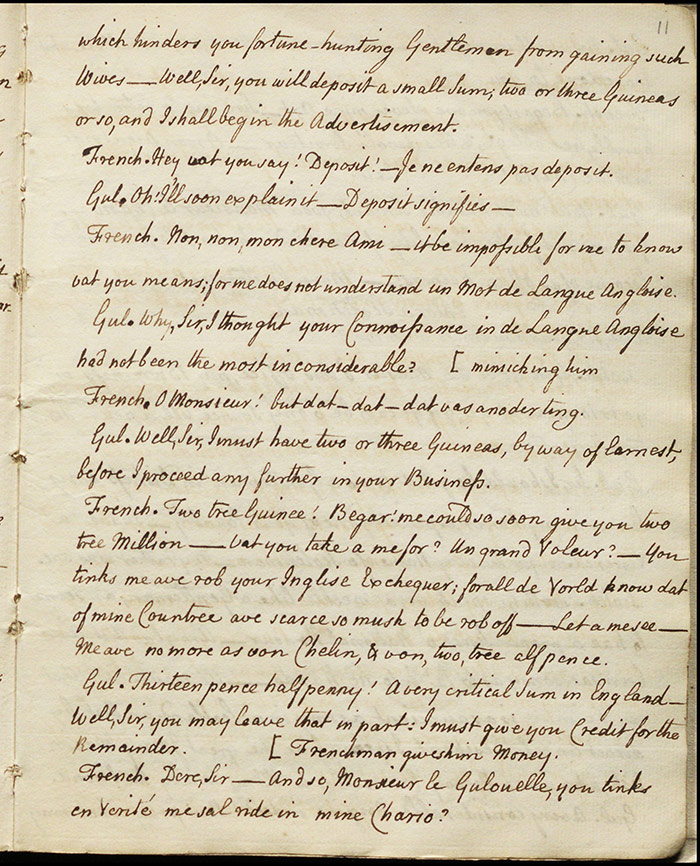 11
which hinders you fortune-hunting Gentlemen from gaining such
Wives — Well, Sir, you will deposit a small Sum; two or three Guineas
or so, and I shall begin the Advertisement.
French. Hey, vat you say! Deposit! — Je ne entens pas deposit.
Gul. Oh! I'll soon explain it — Deposit signifies —
French. Non, non, mon chere Ami — it be impoſsible for me to know
vat you means; for me does not understand un Mot de Langue Angloise.
Gul. Why, Sir, I thought your Connoiſsance in de Langue Angloise
had not been the most inconsiderable? [ mimiching him
French. O Monsieur! but dat – dat – dat vas anoder ting.
Gul. Well, Sir, I must have two or three Guineas, by way of Earnest,
before I proceed any further in your Busineſs.
French. Two tree Guinee! Begar! me could so soon give you two
tree Million — Vat you take a me for? Un grand Voleur? — You
tinks me ave rob your Inglise Exchequer; for all de Vorld know dat
of mine Countree ave scarce so mush to be rob off — Let a me see —
Me ave no more as von Chelin, & von, two, tree alfpence.
Gul. Thirteen pence halfpenny! A very critical Sum in England —
Well, Sir, you may leave that in part: I must give you Credit for the
Remainder. [ Frenchman gives him Money.
French. Dere, Sir — And so, Monsieur le Gulouelle, you tinks
en Verité me sal ride in mine Chario?